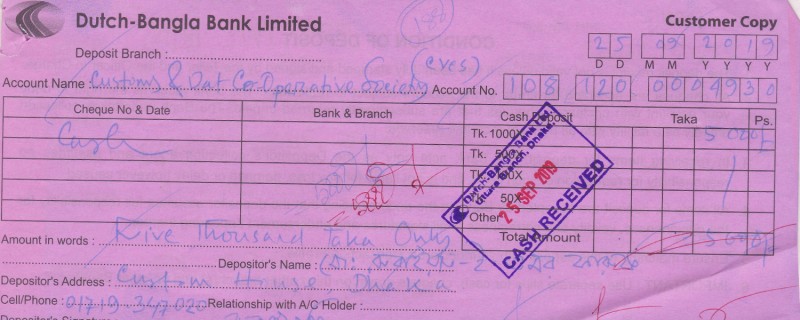 Dutch-Bangla Bank Limited
Customer Copy
Deposit Branch :
25 09 2019
D D M M Y Y Y Y
Account Name : Customs & Vat Co-Operative Society
Account No. 108 120 0004930
Cheque No & Date Bank & Branch Cash Deposit Taka Ps.
Cash Tk. 1000X 5000/-
Tk. 500X
Tk.
50X
Other
Total Amount 5000/-
Dutch-Bangla Bank Ltd.
Dhaka Branch, Dhaka.
25 SEP 2019
CASH RECEIVED
Amount in words : Five Thousand Taka Only
Depositor's Name :
Depositor's Address : Custom House, Dhaka
Cell/Phone : 01719-347020 Relationship with A/C Holder :
Depositor's Signature